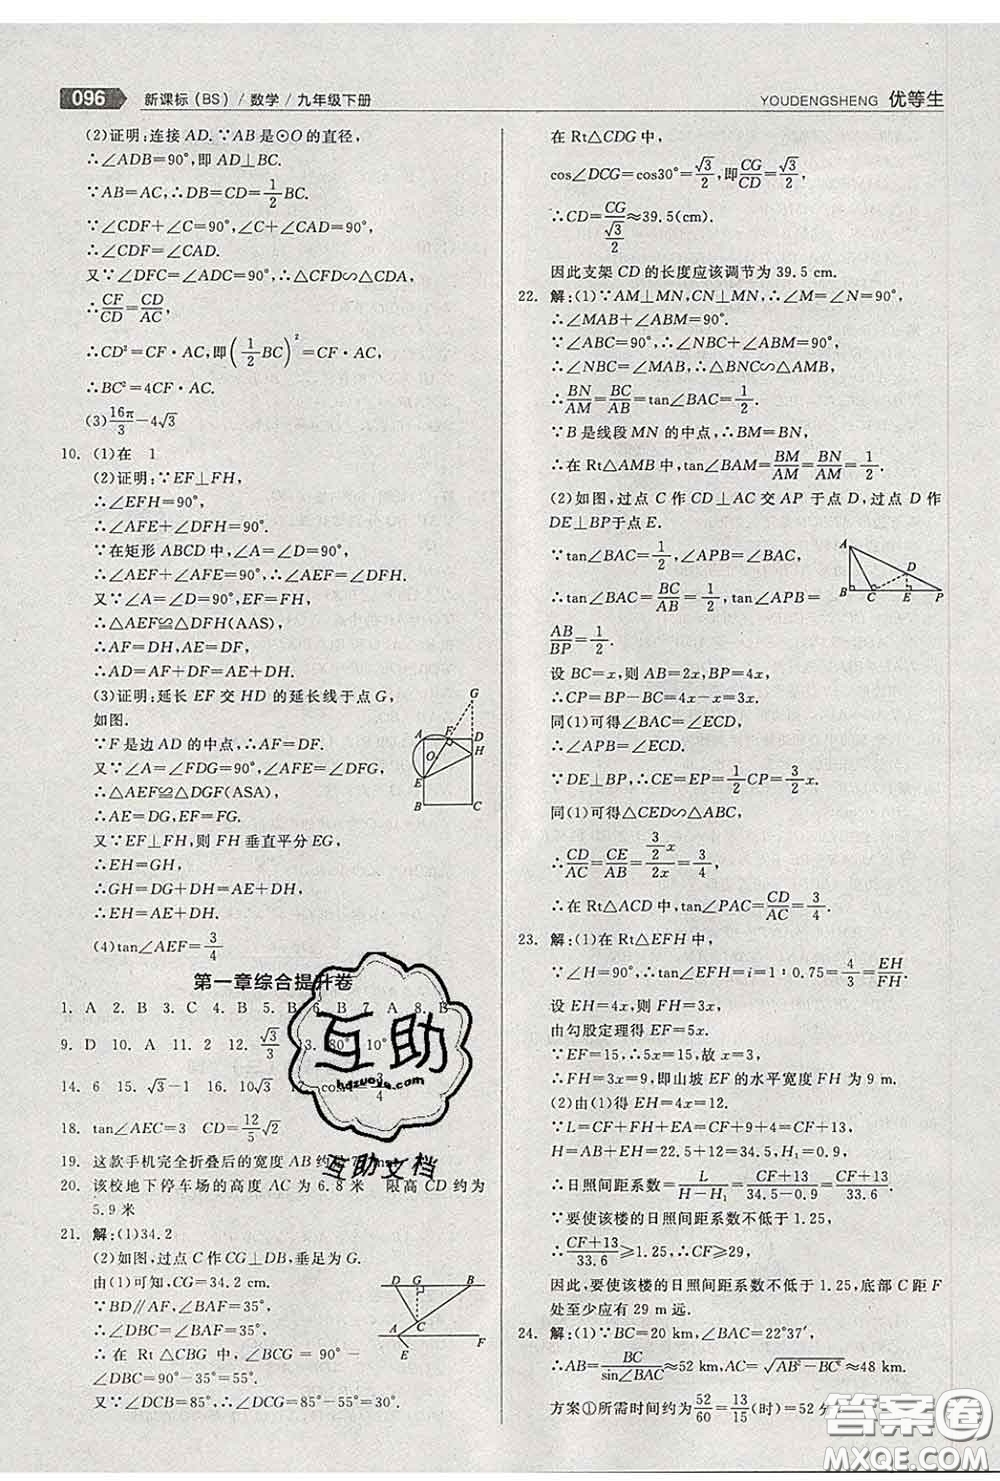 096 新课标(BS)/数学/九年级下册
YOUDENGSHENG 优等生
(2)证明:连接 AD.∵AB是⊙O的直径,
∴∠ADB=90°,即 AD⊥BC.
∵AB=AC,∴DB=CD=1/2BC.
∵∠CDF+∠C=90°,∠C+∠CAD=90°,
∴∠CDF=∠CAD.
又∵∠DFC=∠ADC=90°,∴△CFD∽△CDA,
∴CF/CD=CD/AC,
∴CD²=CF·AC,即(1/2BC)²=CF·AC,
∴BC²=4CF·AC.
(3)16π/3-4√3
10. (1)在 1
(2)证明:∵EF⊥FH,
∴∠EFH=90°,
∴∠AFE+∠DFH=90°.
∵在矩形 ABCD 中,∠A=∠D=90°,
∴∠AEF+∠AFE=90°,∴∠AEF=∠DFH.
又∵∠A=∠D=90°,EF=FH,
∴△AEF≌△DFH(AAS),
∴AF=DH,AE=DF,
∴AD=AF+DF=AE+DH.
(3)证明:延长 EF 交 HD 的延长线于点 G,
如图.
∵F是边 AD 的中点,∴AF=DF.
又∵∠A=∠FDG=90°,∠AFE=∠DFG,
∴△AEF≌△DGF(ASA),
∴AE=DG,EF=FG.
又∵EF⊥FH,则 FH 垂直平分 EG,
∴EH=GH.
∵GH=DG+DH=AE+DH,
∴EH=AE+DH.
(4)tan∠AEF=3/4
G
A F D
H
O
E
B C
第一章综合提升卷
1. A 2. B 3. C 4. B 5. B 6. B 7. A 8. B
9. D 10. A 11. 2 12. √3/3
14. 6 15. √3-1 16. 10√3
18. tan∠AEC=3 CD=12/5√2
19. 这款手机完全折叠后的宽度 AB 约
20. 该校地下停车场的高度 AC 为 6.8 米 限高 CD 约为
5.9 米
21. 解:(1)34.2
(2)如图,过点 C 作 CG⊥DB,垂足为 G.
由(1)可知,CG=34.2 cm.
∵BD∥AF,∠BAF=35°,
∴∠DBC=∠BAF=35°,
∴在 Rt△CBG 中,∠BCG=90°-
∠DBC=90°-35°=55°.
又∵∠DCB=85°,∴∠DCG=85°-55°=30°.
D G B
C
A F
E
在 Rt△CDG 中,
cos∠DCG=cos30°=√3/2,即CG/CD=√3/2,
∴CD=CG/(√3/2)≈39.5(cm).
因此支架 CD 的长度应该调节为 39.5 cm.
22. 解:(1)∵AM⊥MN,CN⊥MN,∴∠M=∠N=90°,
∴∠MAB+∠ABM=90°.
∵∠ABC=90°,∴∠NBC+∠ABM=90°,
∴∠NBC=∠MAB,∴△BNC∽△AMB,
∴BN/AM=BC/AB=tan∠BAC=1/2.
∵B是线段 MN 的中点,∴BM=BN,
∴在 Rt△AMB 中,tan∠BAM=BM/AM=BN/AM=1/2.
(2)如图,过点 C 作 CD⊥AC 交 AP 于点 D,过点 D 作
DE⊥BP于点 E.
∵tan∠BAC=1/2,∠APB=∠BAC,
∴tan∠BAC=BC/AB=1/2,tan∠APB=
AB/BP=1/2.
设 BC=x,则 AB=2x,BP=4x,
∴CP=BP-BC=4x-x=3x.
同(1)可得∠BAC=∠ECD,
∴∠APB=∠ECD.
∵DE⊥BP,∴CE=EP=1/2CP=3/2x.
同(1)可得△CED∽△ABC,
∴CD/AC=CE/AB=(3/2x)/2x=3/4,
∴在 Rt△ACD 中,tan∠PAC=CD/AC=3/4.
A
D
B C E P
23. 解:(1)在 Rt△EFH 中,
∵∠H=90°,∴tan∠EFH=i=1∶0.75=4/3=EH/FH.
设 EH=4x,则 FH=3x,
由勾股定理得 EF=5x.
∵EF=15,∴5x=15,故 x=3,
∴FH=3x=9,即山坡 EF 的水平宽度 FH 为 9 m.
(2)由(1)得 EH=4x=12.
∵L=CF+FH+EA=CF+9+4=CF+13,
H=AB+EH=22.5+12=34.5,H₁=0.9,
∴日照间距系数=L/(H-H₁)=(CF+13)/(34.5-0.9)=(CF+13)/33.6.
∵要使该楼的日照间距系数不低于 1.25,
∴(CF+13)/33.6≥1.25,∴CF≥29.
因此,要使该楼的日照间距系数不低于 1.25,底部 C 距 F
处至少应有 29 m 远.
24. 解:(1)∵BC=20 km,∠BAC=22°37′,
∴AB=BC/sin∠BAC≈52 km,AC=√(AB²-BC²)≈48 km.
方案①所需时间约为52/60=13/15(时)=52 分
互助
hdzuoye.com
互助文档
答案圈
MXQE.COM